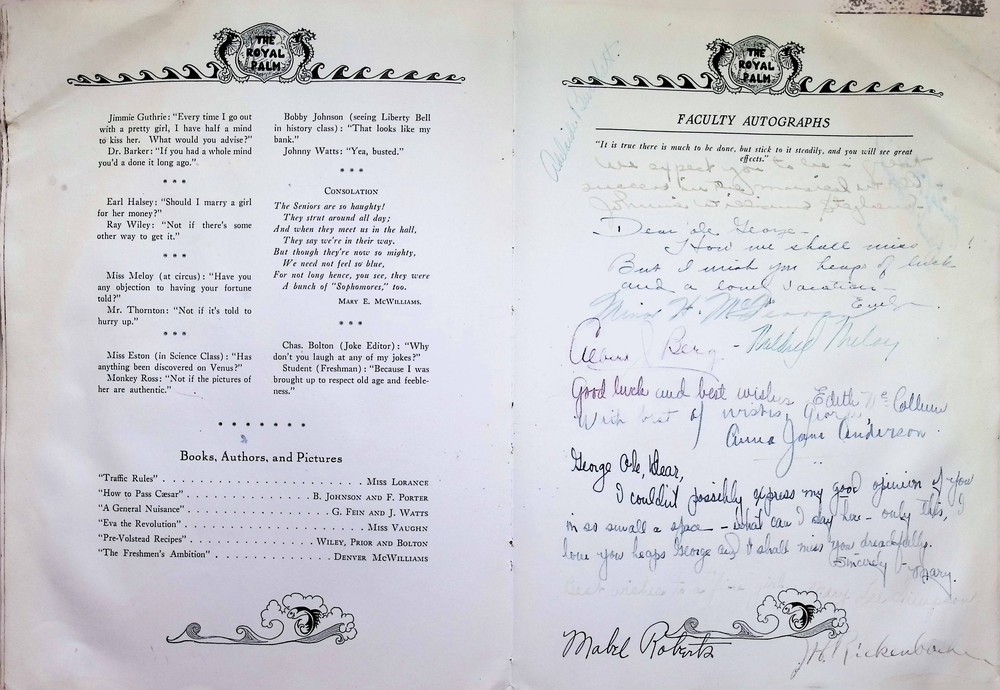 THE
ROYAL
PALM
Jimmie Guthrie: "Every time I go out
with a pretty girl, I have half a mind
to kiss her. What would you advise?"
Dr. Barker: "If you had a whole mind
you'd a done it long ago."
* * *
Earl Halsey: "Should I marry a girl
for her money?"
Ray Wiley: "Not if there's some
other way to get it."
* * *
Miss Meloy (at circus): "Have you
any objection to having your fortune
told?"
Mr. Thornton: "Not if it's told to
hurry up."
* * *
Miss Eston (in Science Class): "Has
anything been discovered on Venus?"
Monkey Ross: "Not if the pictures of
her are authentic."
Bobby Johnson (seeing Liberty Bell
in history class): "That looks like my
bank."
Johnny Watts: "Yea, busted."
* * *
CONSOLATION
The Seniors are so haughty!
They strut around all day;
And when they meet us in the hall,
They say we're in their way.
But though they're now so mighty,
We need not feel so blue,
For not long hence, you see, they were
A bunch of "Sophomores," too.
MARY E. MCWILLIAMS.
* * *
Chas. Bolton (Joke Editor): "Why
don't you laugh at any of my jokes?"
Student (Freshman): "Because I was
brought up to respect old age and feeble-
ness."
* * * * * * *
Books, Authors, and Pictures
"Traffic Rules" . . . . . . . . . . MISS LORANCE
"How to Pass Cæsar" . . . . . . . . . . B. JOHNSON AND F. PORTER
"A General Nuisance" . . . . . . . . . . G. FEIN AND J. WATTS
"Eva the Revolution" . . . . . . . . . . MISS VAUGHN
"Pre-Volstead Recipes" . . . . . . . . . . WILEY, PRIOR AND BOLTON
"The Freshmen's Ambition" . . . . . . . . . . DENVER MCWILLIAMS
THE
ROYAL
PALM
FACULTY AUTOGRAPHS
"It is true there is much to be done, but stick to it steadily, and you will see great
effects."
We expect you to be a great
success in the musical world
Dear ole George—
How we shall miss
But I wish you heaps of luck
and a lovely vacation—
Evelyn
Albert J Berg - Mildred Meloy
Good luck and best wishes Edith McCollum
With best of wishes, George
Anna Jane Anderson
George Ole, Dear,
I couldn't possibly express my good opinion of you
in so small a space — what can I say here - only this, I
love you heaps George and I shall miss you dreadfully.
Sincerely Mary.
Best wishes to a
Mabel Roberts
J H Rickenbacker